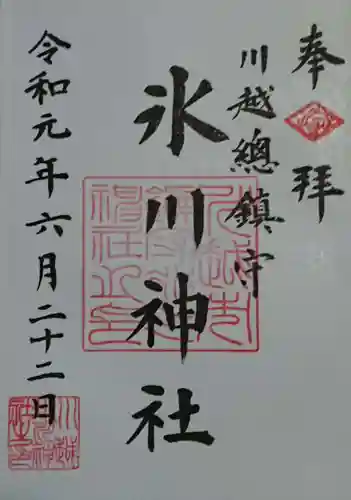 奉拝
川越總鎮守
氷川神社
令和元年六月二十二日